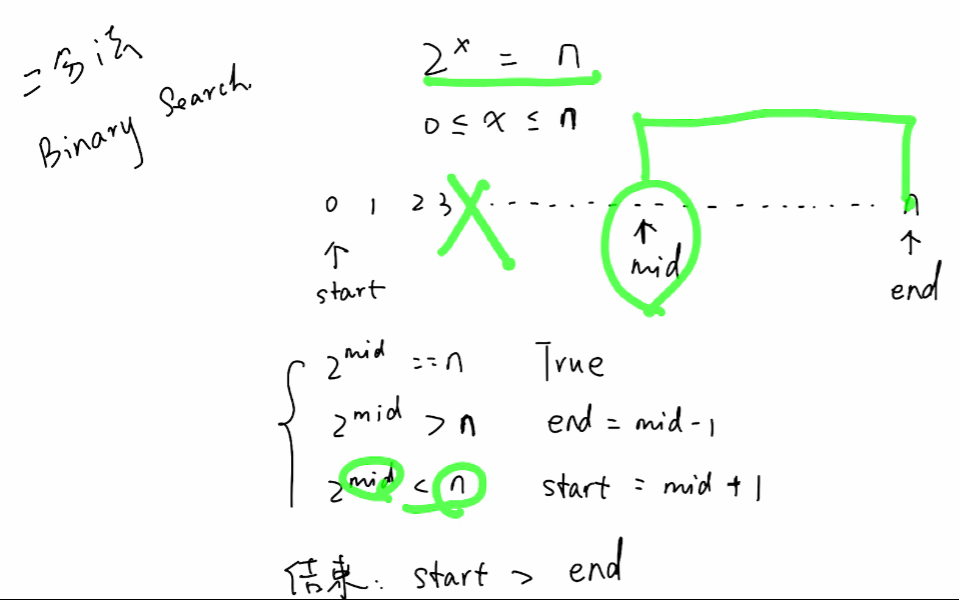 二分法
Binary Search.
2^x = n
0 ≤ x ≤ n
0 1 2 3 ............ n
↑ start ↑ mid ↑ end
2^mid == n True
2^mid > n end = mid - 1
2^mid < n start = mid + 1
结束: start > end